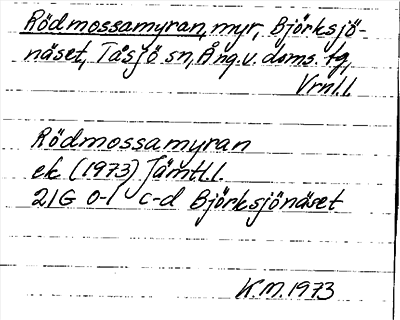 Rödmossamyran, myr, Björksjö-
näset, Tåsjö sn, Ång. v. doms. tg,
Vrnl. l.
Rödmossamyran
ek (1973) Jämtl. l.
21G 0-1 c-d Björksjönäset
K.M. 1973